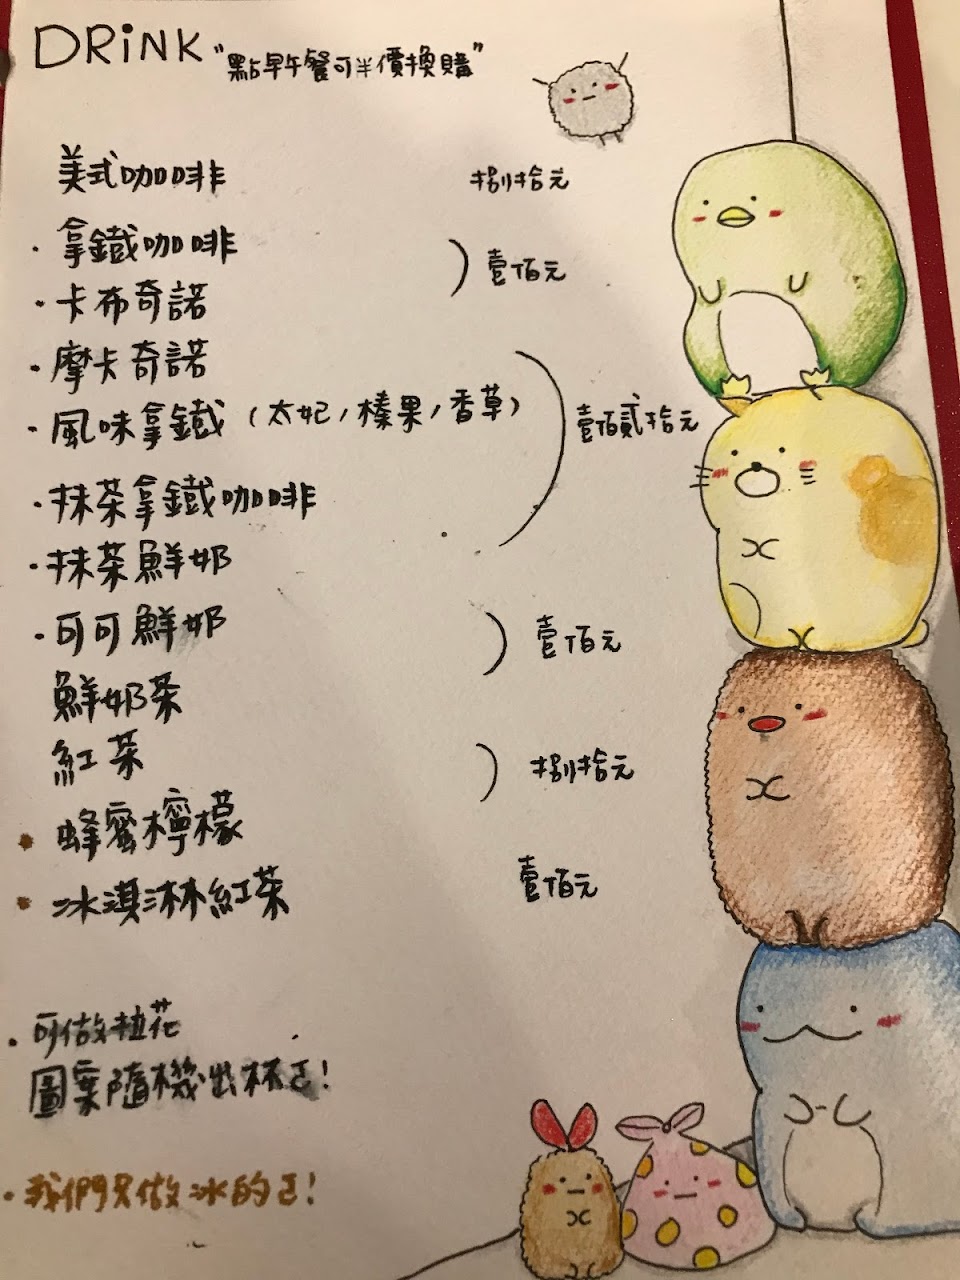 DRiNK "點早午餐可半價換購"
美式咖啡 捌拾元
· 拿鐵咖啡
壹佰元
· 卡布奇諾
· 摩卡奇諾
· 風味拿鐵 (太妃/榛果/香草) 壹佰貳拾元
· 抹茶拿鐵咖啡
· 抹茶鮮奶
· 可可鮮奶
壹佰元
鮮奶茶
紅茶 捌拾元
· 蜂蜜檸檬
· 冰淇淋紅茶 壹佰元
· 可做拉花
圖案隨機出杯己!
· 我們只做冰的己!